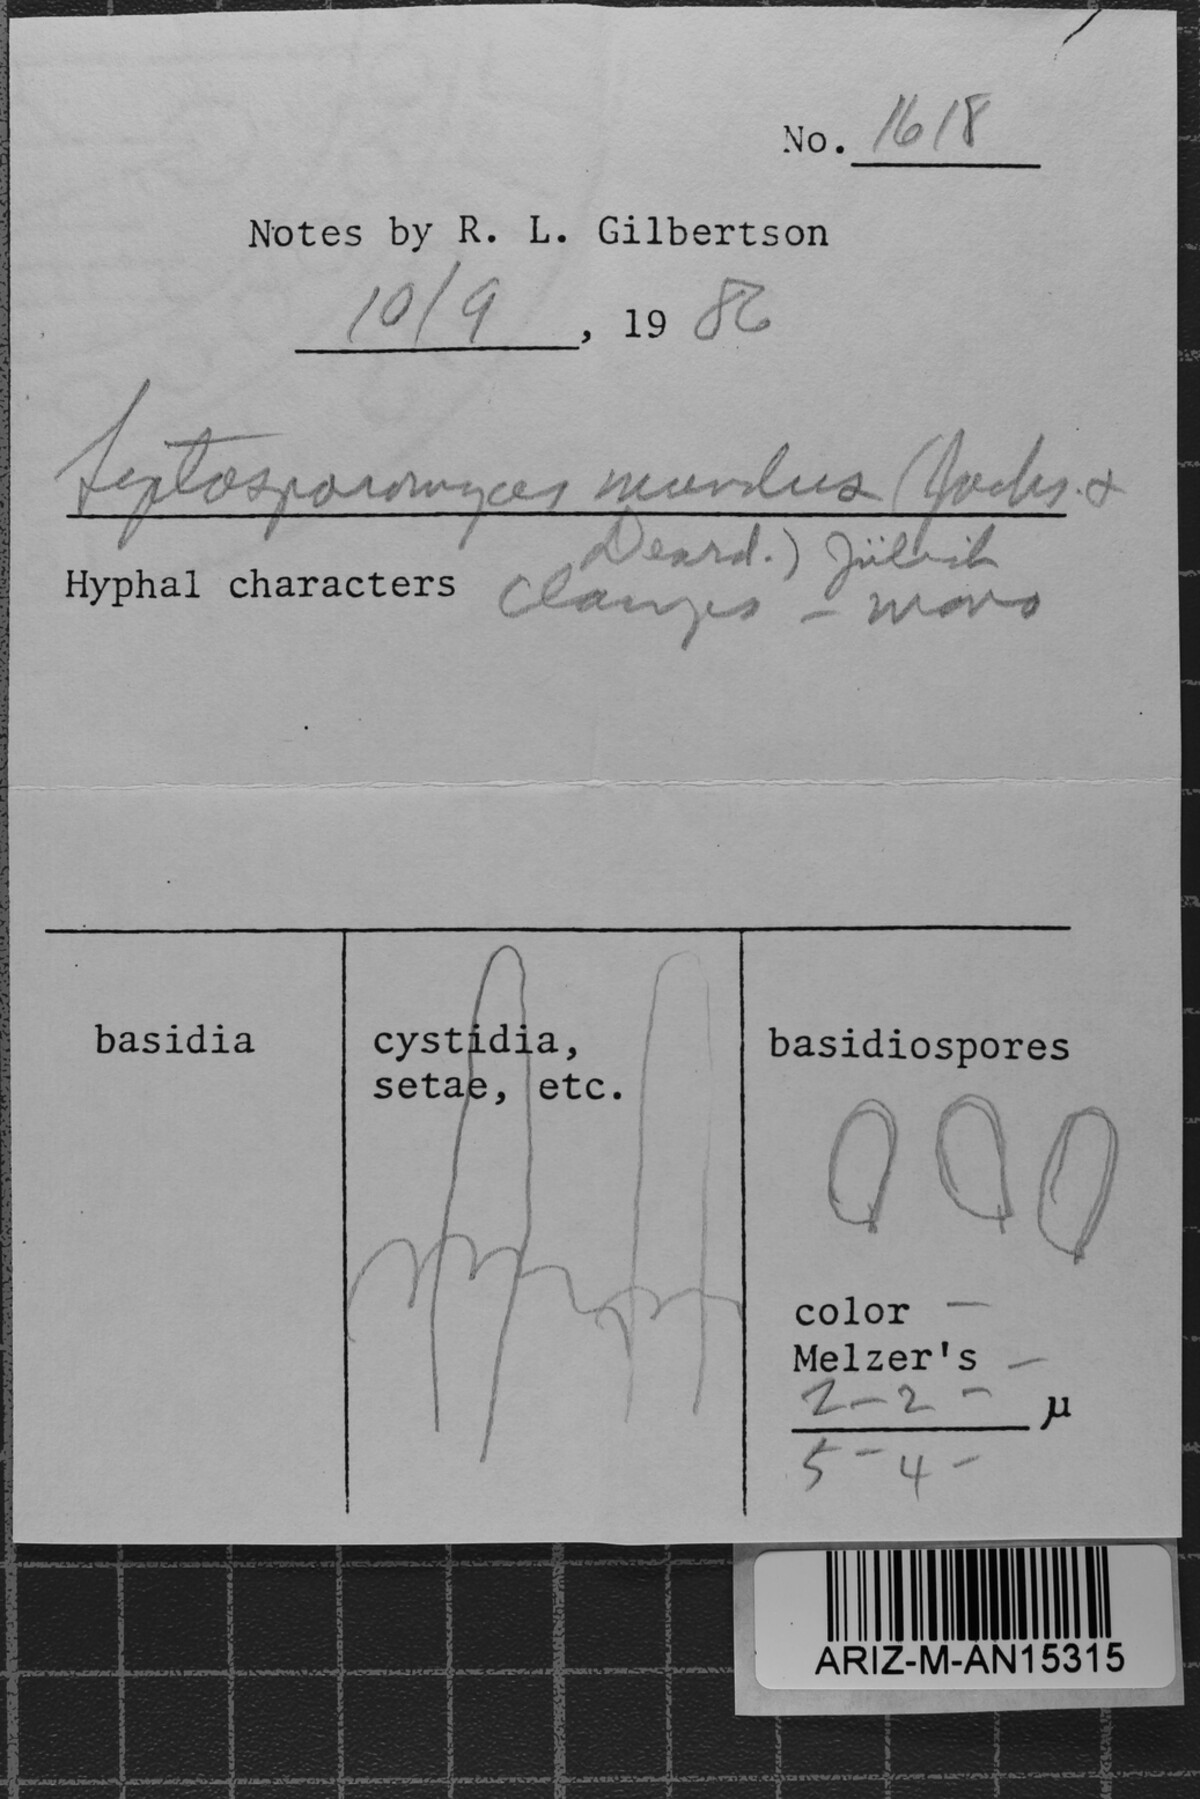 No. 1618
Notes by R. L. Gilbertson
10/9, 19 86
Leptosporomyces mundus (Jacks. &
Deard.) Jülich
Hyphal characters Clamps – mono
basidia
cystidia,
setae, etc.
basidiospores
color –
Melzer's –
2–2 – µ
5 – 4 –
ARIZ-M-AN15315